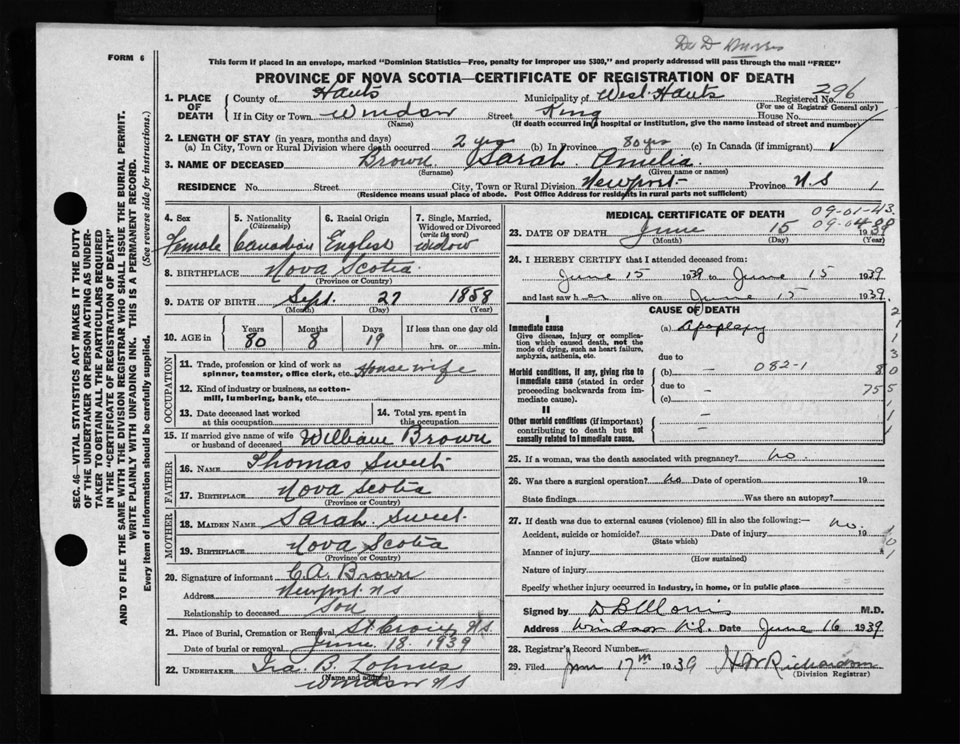 FORM 6
This form if placed in an envelope, marked "Dominion Statistics—Free, penalty for improper use $300," and properly addressed will pass through the mail "FREE"
PROVINCE OF NOVA SCOTIA—CERTIFICATE OF REGISTRATION OF DEATH
1. PLACE OF DEATH County of Hants Municipality of West Hants Registered No. 296
(For use of Registrar General only)
If in City or Town Windsor Street King House No.
(Name) (If death occurred in a hospital or institution, give the name instead of street and number)
2. LENGTH OF STAY (in years, months and days)
(a) In City, Town or Rural Division where death occurred 2 yrs (b) In Province 80 yrs (c) In Canada (if immigrant)
3. NAME OF DECEASED Brown Sarah Amelia
(Surname) (Given name or names)
RESIDENCE No. Street City, Town or Rural Division Newport Province N S
(Residence means usual place of abode. Post Office Address for residents in rural parts not sufficient)
4. Sex Female
5. Nationality (Citizenship) Canadian
6. Racial Origin English
7. Single, Married, Widowed or Divorced (write the word) widow
8. BIRTHPLACE Nova Scotia
(Province or Country)
9. DATE OF BIRTH Sept. 27 1858
(Month) (Day) (Year)
10. AGE in Years 80 Months 8 Days 19 If less than one day old hrs. or min.
OCCUPATION
11. Trade, profession or kind of work as spinner, teamster, office clerk, etc. House wife
12. Kind of industry or business, as cotton-mill, lumbering, bank, etc.
13. Date deceased last worked at this occupation
14. Total yrs. spent in this occupation
15. If married give name of wife or husband of deceased William Brown
FATHER
16. NAME Thomas Sweet
17. BIRTHPLACE Nova Scotia
(Province or Country)
MOTHER
18. MAIDEN NAME Sarah Sweet
19. BIRTHPLACE Nova Scotia
(Province or Country)
20. Signature of informant C.A. Brown
Address Newport N S
Relationship to deceased Son
21. Place of Burial, Cremation or Removal St Croix, N.S.
Date of burial or removal June 18. 1939
22. UNDERTAKER Ira B. Lohnes
(Name and address)
Windsor N S
MEDICAL CERTIFICATE OF DEATH
09-01-43
09-04-88
23. DATE OF DEATH June 15 1939
(Month) (Day) (Year)
24. I HEREBY CERTIFY that I attended deceased from:
June 15 1939 to June 15 1939
and last saw her alive on June 15 1939.
CAUSE OF DEATH
I
Immediate cause
Give disease, injury or complication which caused death, not the mode of dying, such as heart failure, asphyxia, asthenia, etc.
(a) Apoplexy
due to
Morbid conditions, if any, giving rise to immediate cause (stated in order proceeding backwards from immediate cause).
(b) – 082-1
due to –
(c)
II
Other morbid conditions (if important) contributing to death but not causally related to immediate cause.
–
–
25. If a woman, was the death associated with pregnancy? no.
26. Was there a surgical operation? no Date of operation 19
State findings Was there an autopsy?
27. If death was due to external causes (violence) fill in also the following:— no.
Accident, suicide or homicide? Date of injury 19
(State which)
Manner of injury
(How sustained)
Nature of injury
Specify whether injury occurred in industry, in home, or in public place
Signed by D B Morris M.D.
Address Windsor N.S. Date June 16 1939
28. Registrar's Record Number
29. Filed June 17th 1939 H W Richardson
(Division Registrar)
SEC. 46—VITAL STATISTICS ACT MAKES IT THE DUTY
OF THE UNDERTAKER OR PERSON ACTING AS UNDER-
TAKER TO OBTAIN ALL THE PARTICULARS REQUIRED
IN THE "CERTIFICATE OF REGISTRATION OF DEATH"
AND TO FILE THE SAME WITH THE DIVISION REGISTRAR WHO SHALL ISSUE THE BURIAL PERMIT.
WRITE PLAINLY WITH UNFADING INK. THIS IS A PERMANENT RECORD.
Every item of information should be carefully supplied. (See reverse side for instructions.)